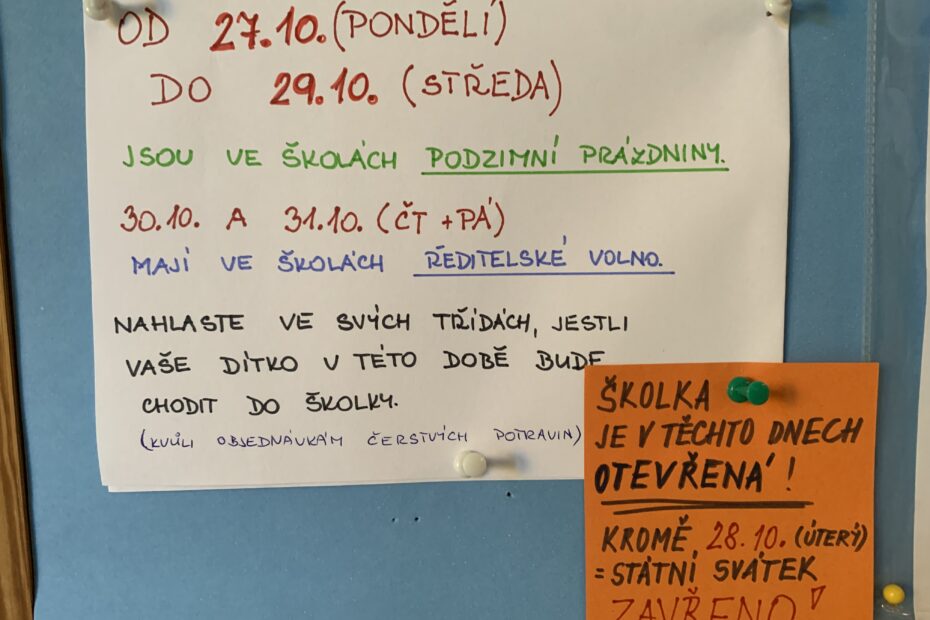 OD 27.10. (PONDĚLÍ)
DO 29.10. (STŘEDA)
JSOU VE ŠKOLÁCH PODZIMNÍ PRÁZDNINY.
30.10. A 31.10. (ČT + PÁ)
MAJÍ VE ŠKOLÁCH ŘEDITELSKÉ VOLNO.
NAHLASTE VE SVÝCH TŘÍDÁCH, JESTLI
VAŠE DÍTKO V TÉTO DOBĚ BUDE
CHODIT DO ŠKOLKY.
(KVŮLI OBJEDNÁVKÁM ČERSTVÝCH POTRAVIN)
ŠKOLKA
JE V TĚCHTO DNECH
OTEVŘENÁ!
KROMĚ 28.10. (ÚTERÝ)
= STÁTNÍ SVÁTEK
ZAVŘENO!